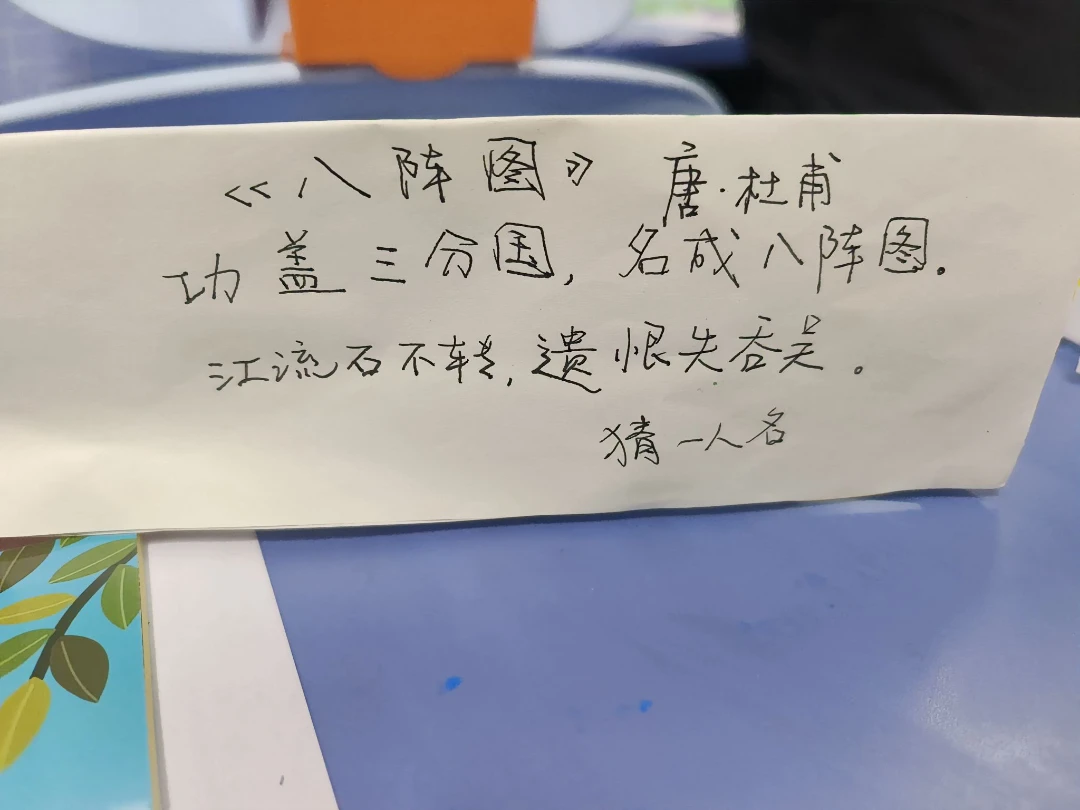 《八阵图》 唐·杜甫
功盖三分国，名成八阵图。
江流石不转，遗恨失吞吴。
猜一人名